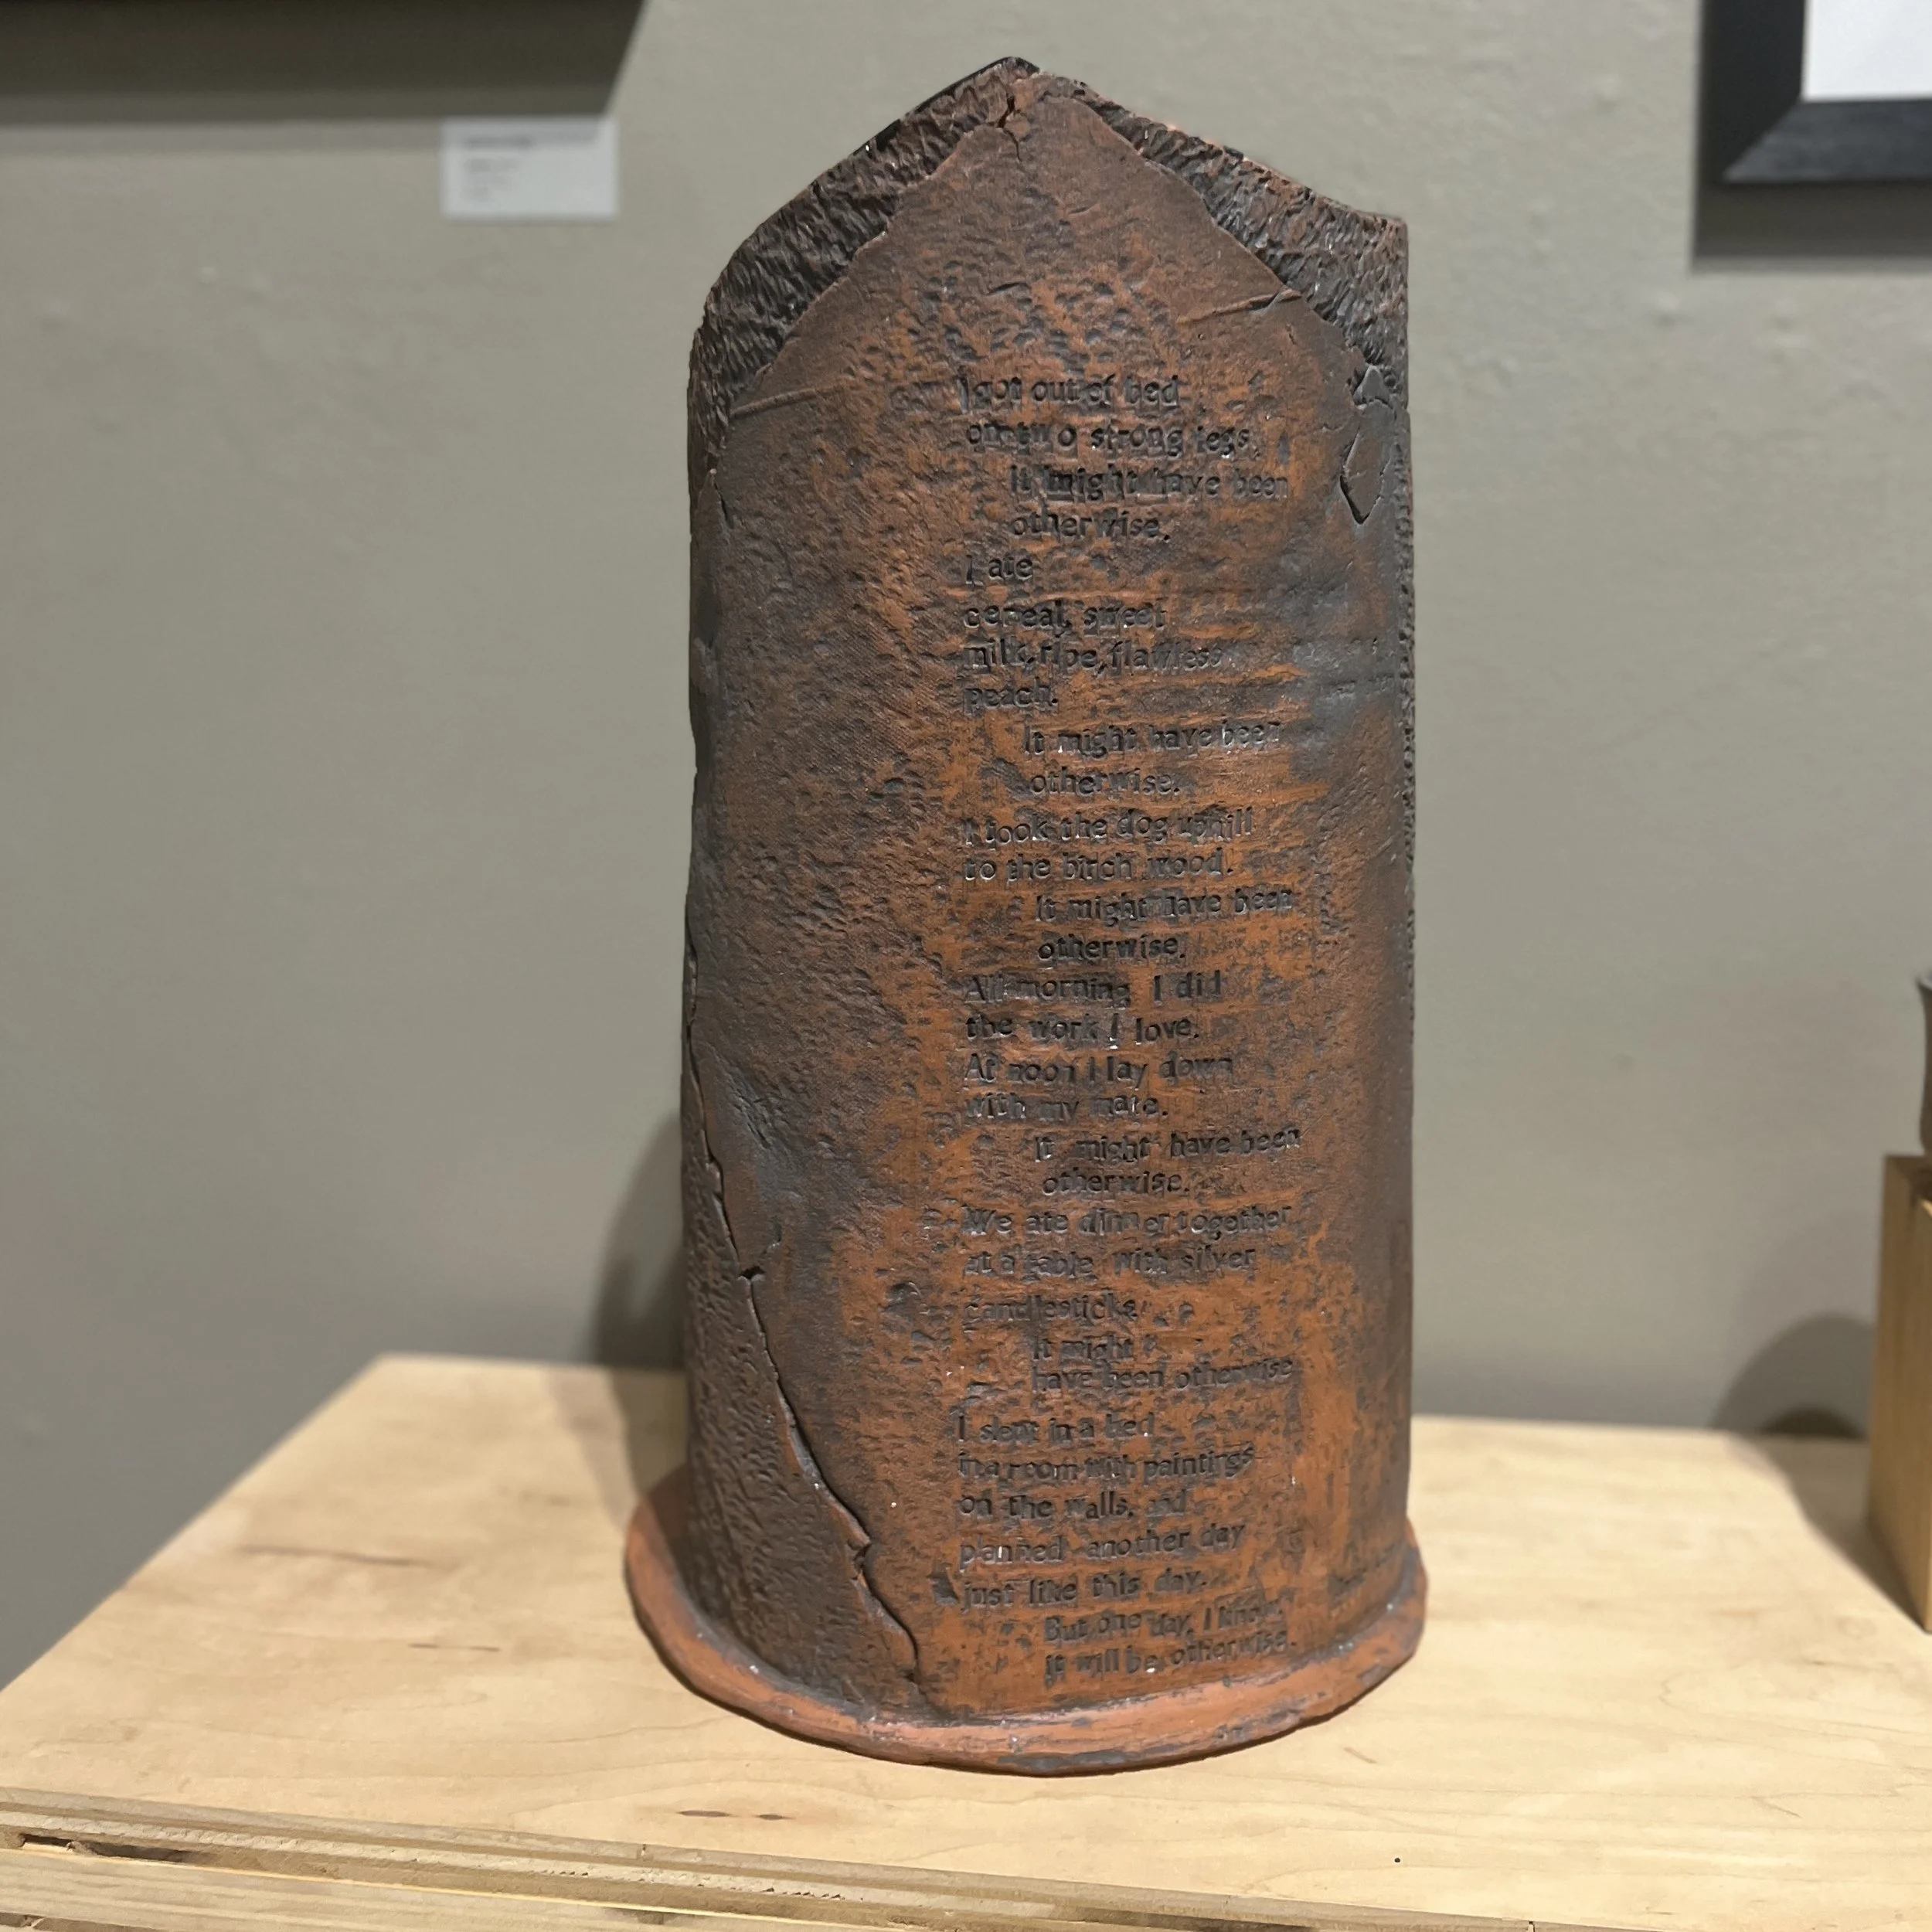 I got out of bed
on two strong legs.
It might have been
otherwise.
I ate
cereal, sweet
milk, ripe, flawless
peach.
It might have been
otherwise.
I took the dog uphill
to the birch wood.
It might have been
otherwise.
All morning I did
the work I love.
At noon I lay down
with my mate.
It might have been
otherwise.
We ate dinner together
at a table with silver
candlesticks.
It might
have been otherwise
I slept in a bed
in a room with paintings
on the walls, and
planned another day
just like this day.
But one day, I know,
it will be otherwise.